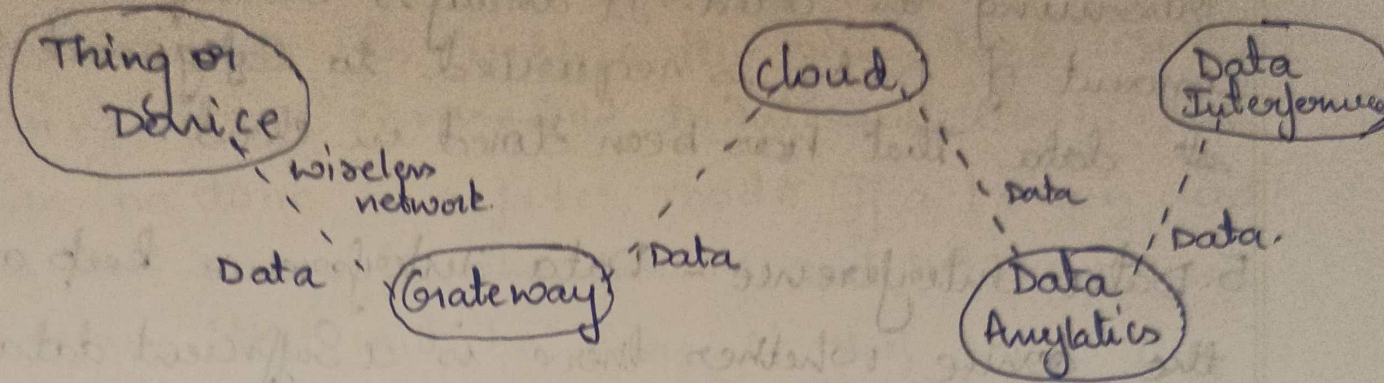 Thing or
Device
wireless
network.
Data
Gateway
Data
Cloud
Data
Data
Anylatics
Data.
Data